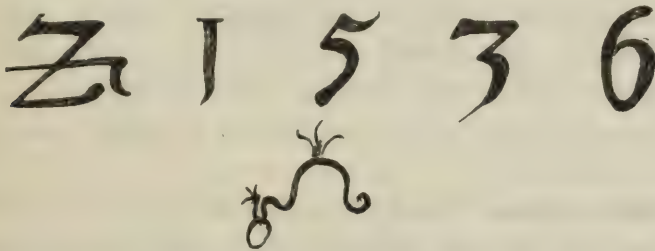 Z 1536